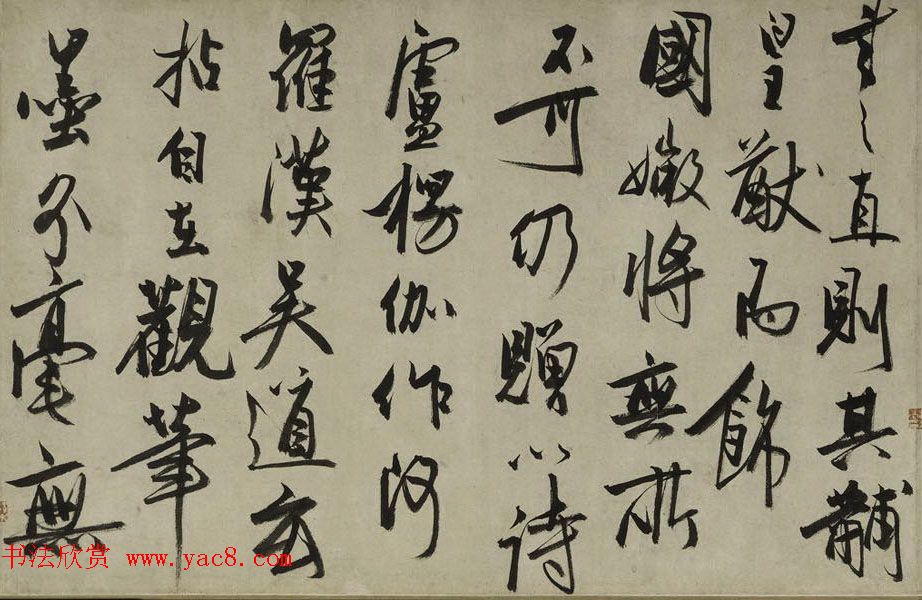 書之直則其黼
皇猷而飾
國嫩將無所
不可仍贈以詩
盧楞伽作阿
羅漢吳道玄
拈自在觀筆
墨分毫無
书法欣赏 www.yac8.com